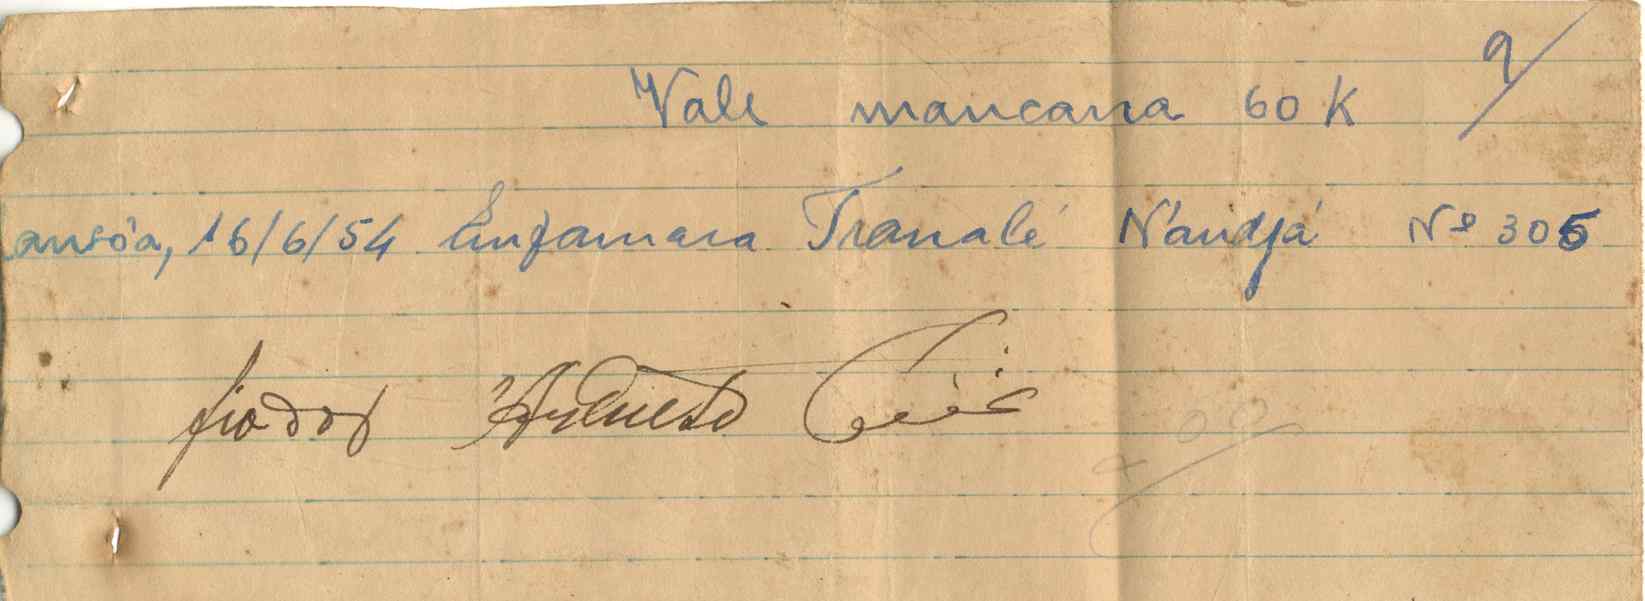 Vale mancarra 60 K 9/
ansôa, 16/6/54 Enfamara Tranalé N'andjá Nº 305
fiador Ernesto